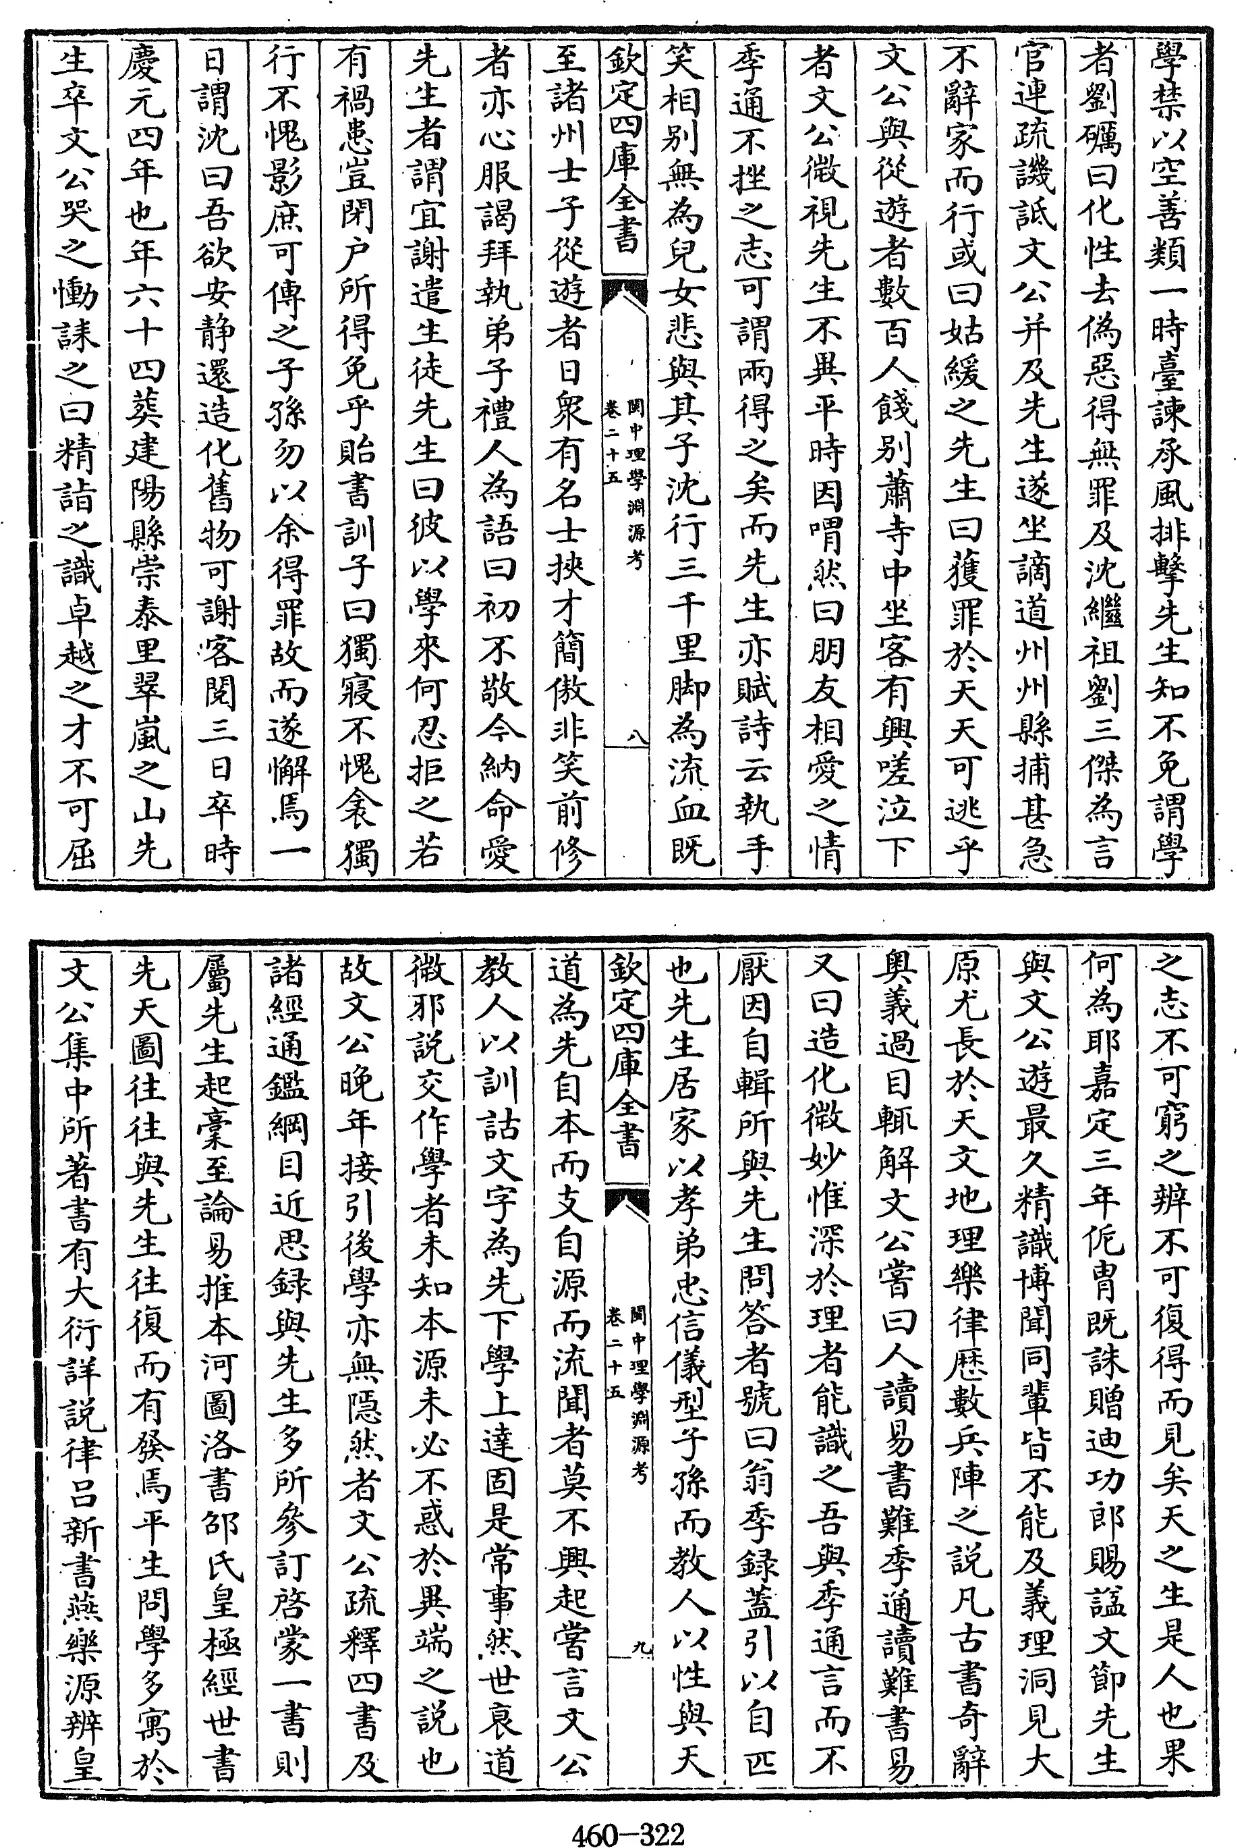 學禁以空善類一時臺諫承風排擊先生知不免謂學
者劉礪曰化性去偽惡得無罪及沈繼祖劉三傑為言
官連疏譏詆文公并及先生遂坐謫道州州縣捕甚急
不辭家而行或曰姑緩之先生曰獲罪於天天可逃乎
文公與從遊者數百人餞別蕭寺中坐客有興嗟泣下
者文公微視先生不異平時因喟然曰朋友相愛之情
季通不挫之志可謂兩得之矣而先生亦賦詩云執手
笑相別無為兒女悲與其子沈行三千里脚為流血既
欽定四庫全書
閩中理學淵源考
卷二十五
八
至諸州士子從遊者日衆有名士挾才簡傲非笑前修
者亦心服謁拜執弟子禮人為語曰初不敬今納命愛
先生者謂宜謝遣生徒先生曰彼以學來何忍拒之若
有禍患豈閉户所得免乎貽書訓子曰獨寢不愧衾獨
行不愧影庶可傳之子孫勿以余得罪故而遂懈焉一
日謂沈曰吾欲安静還造化舊物可謝客閲三日卒時
慶元四年也年六十四葬建陽縣崇泰里翠嵐之山先
生卒文公哭之慟誄之曰精詣之識卓越之才不可屈
之志不可窮之辨不可復得而見矣天之生是人也果
何為耶嘉定三年侂胄既誅贈迪功郎賜諡文節先生
與文公遊最久精識博聞同輩皆不能及義理洞見大
原尤長於天文地理樂律歴數兵陣之説凡古書奇辭
奥義過目輒解文公嘗曰人讀易書難季通讀難書易
又曰造化微妙惟深於理者能識之吾與季通言而不
厭因自輯所與先生問答者號曰翁季録蓋引以自匹
也先生居家以孝弟忠信儀型子孫而教人以性與天
欽定四庫全書
閩中理學淵源考
卷二十五
九
道為先自本而支自源而流聞者莫不興起嘗言文公
教人以訓詁文字為先下學上達固是常事然世衰道
微邪説交作學者未知本源未必不惑於異端之説也
故文公晚年接引後學亦無隱然者文公疏釋四書及
諸經通鑑綱目近思録與先生多所參訂啓蒙一書則
屬先生起藁至論易推本河圖洛書邵氏皇極經世書
先天圖往往與先生往復而有發焉平生問學多寓於
文公集中所著書有大衍詳説律吕新書燕樂源辨皇
460-322